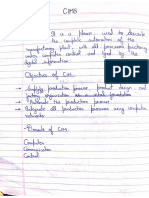 CIMS
It is a phrase used to describe
the complete automation of the
manufacturing plant, with all processes functioning
under computer control and tied by the
digital information
Objective of CIM
→ Simplify production process, product design and
factory organization as a
→ Automate the production processes
→ Integrate all production processes using computer
networks
Elements of CIM
Computer
Communication
Control